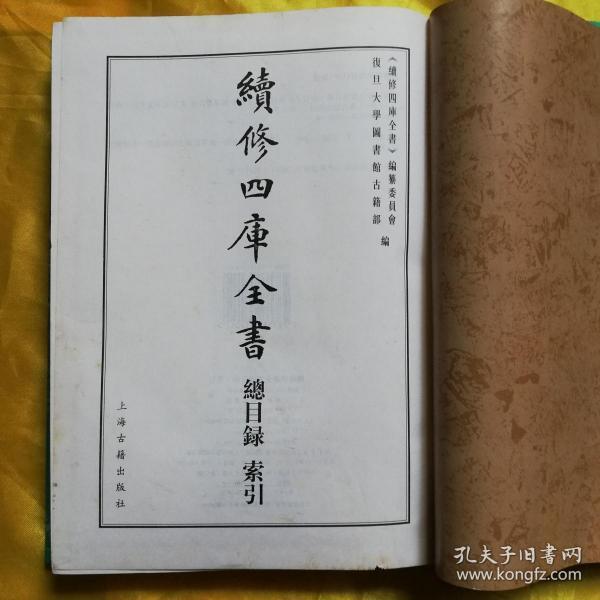 《續修四庫全書》編纂委員會
復旦大學圖書館古籍部 編
續修四庫全書
總目録 索引
上海古籍出版社
孔夫子旧书网
www.kongfz.com